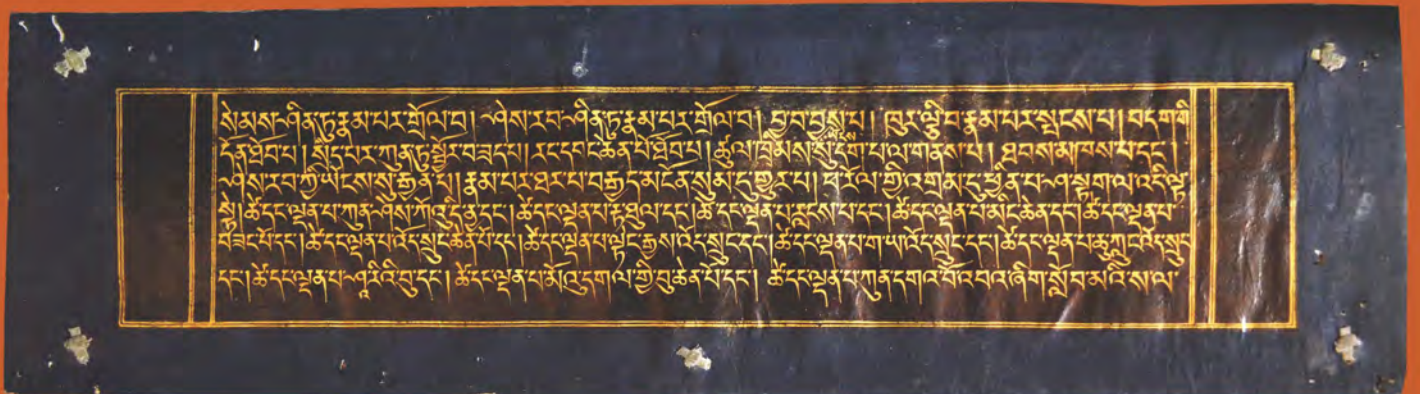 སེམས་ཤིན་ཏུ་རྣམ་པར་གྲོལ་བ། ཤེས་རབ་ཤིན་ཏུ་རྣམ་པར་གྲོལ་བ། བྱ་བ་བྱས་པ། ཁུར་ལྕི་བ་རྣམ་པར་སྤངས་པ། བདག་གི
དོན་ཐོབ་པ། སྲིད་པར་ཀུན་ཏུ་སྦྱོར་བ་ཟད་པ། རང་དབང་ཆེན་པོ་ཐོབ་པ། ཚུལ་ཁྲིམས་སུ་དག་པ་ལ་གནས་པ། ཐབས་མཁས་པ་དང་།
ཤེས་རབ་ཀྱི་ཡོངས་སུ་རྒྱན་པ། རྣམ་པར་ཐར་པ་བརྒྱད་མངོན་སུམ་དུ་གྱུར་པ། ཕ་རོལ་གྱི་འགྲམ་དུ་ཕྱིན་པ་ཤ་སྟག་ལ་འདི་ལྟ་
སྟེ། ཚེ་དང་ལྡན་པ་ཀུན་ཤེས་ཀཽའུ་དི་ནྱ་དང་། ཚེ་དང་ལྡན་པ་རྟ་ཐུལ་དང་། ཚེ་དང་ལྡན་པ་རླངས་པ་དང་། ཚེ་དང་ལྡན་པ་མིང་ཆེན་དང་། ཚེ་དང་ལྡན་པ་
བཟང་པོ་དང་། ཚེ་དང་ལྡན་པ་འོད་སྲུང་ཆེན་པོ་དང་། ཚེ་དང་ལྡན་པ་ལྟེང་རྒྱས་འོད་སྲུང་དང་། ཚེ་དང་ལྡན་པ་ག་ཡཱ་འོད་སྲུང་དང་། ཚེ་དང་ལྡན་པ་ཆུ་ཀླུང་འོད་སྲུང་
དང་། ཚེ་དང་ལྡན་པ་ཤཱ་རིའི་བུ་དང་། ཚེ་དང་ལྡན་པ་མོའུ་དགལ་གྱི་བུ་ཆེན་པོ་དང་། ཚེ་དང་ལྡན་པ་ཀུན་དགའ་བོ་འབའ་ཞིག་སློབ་མའི་ས་ལ་